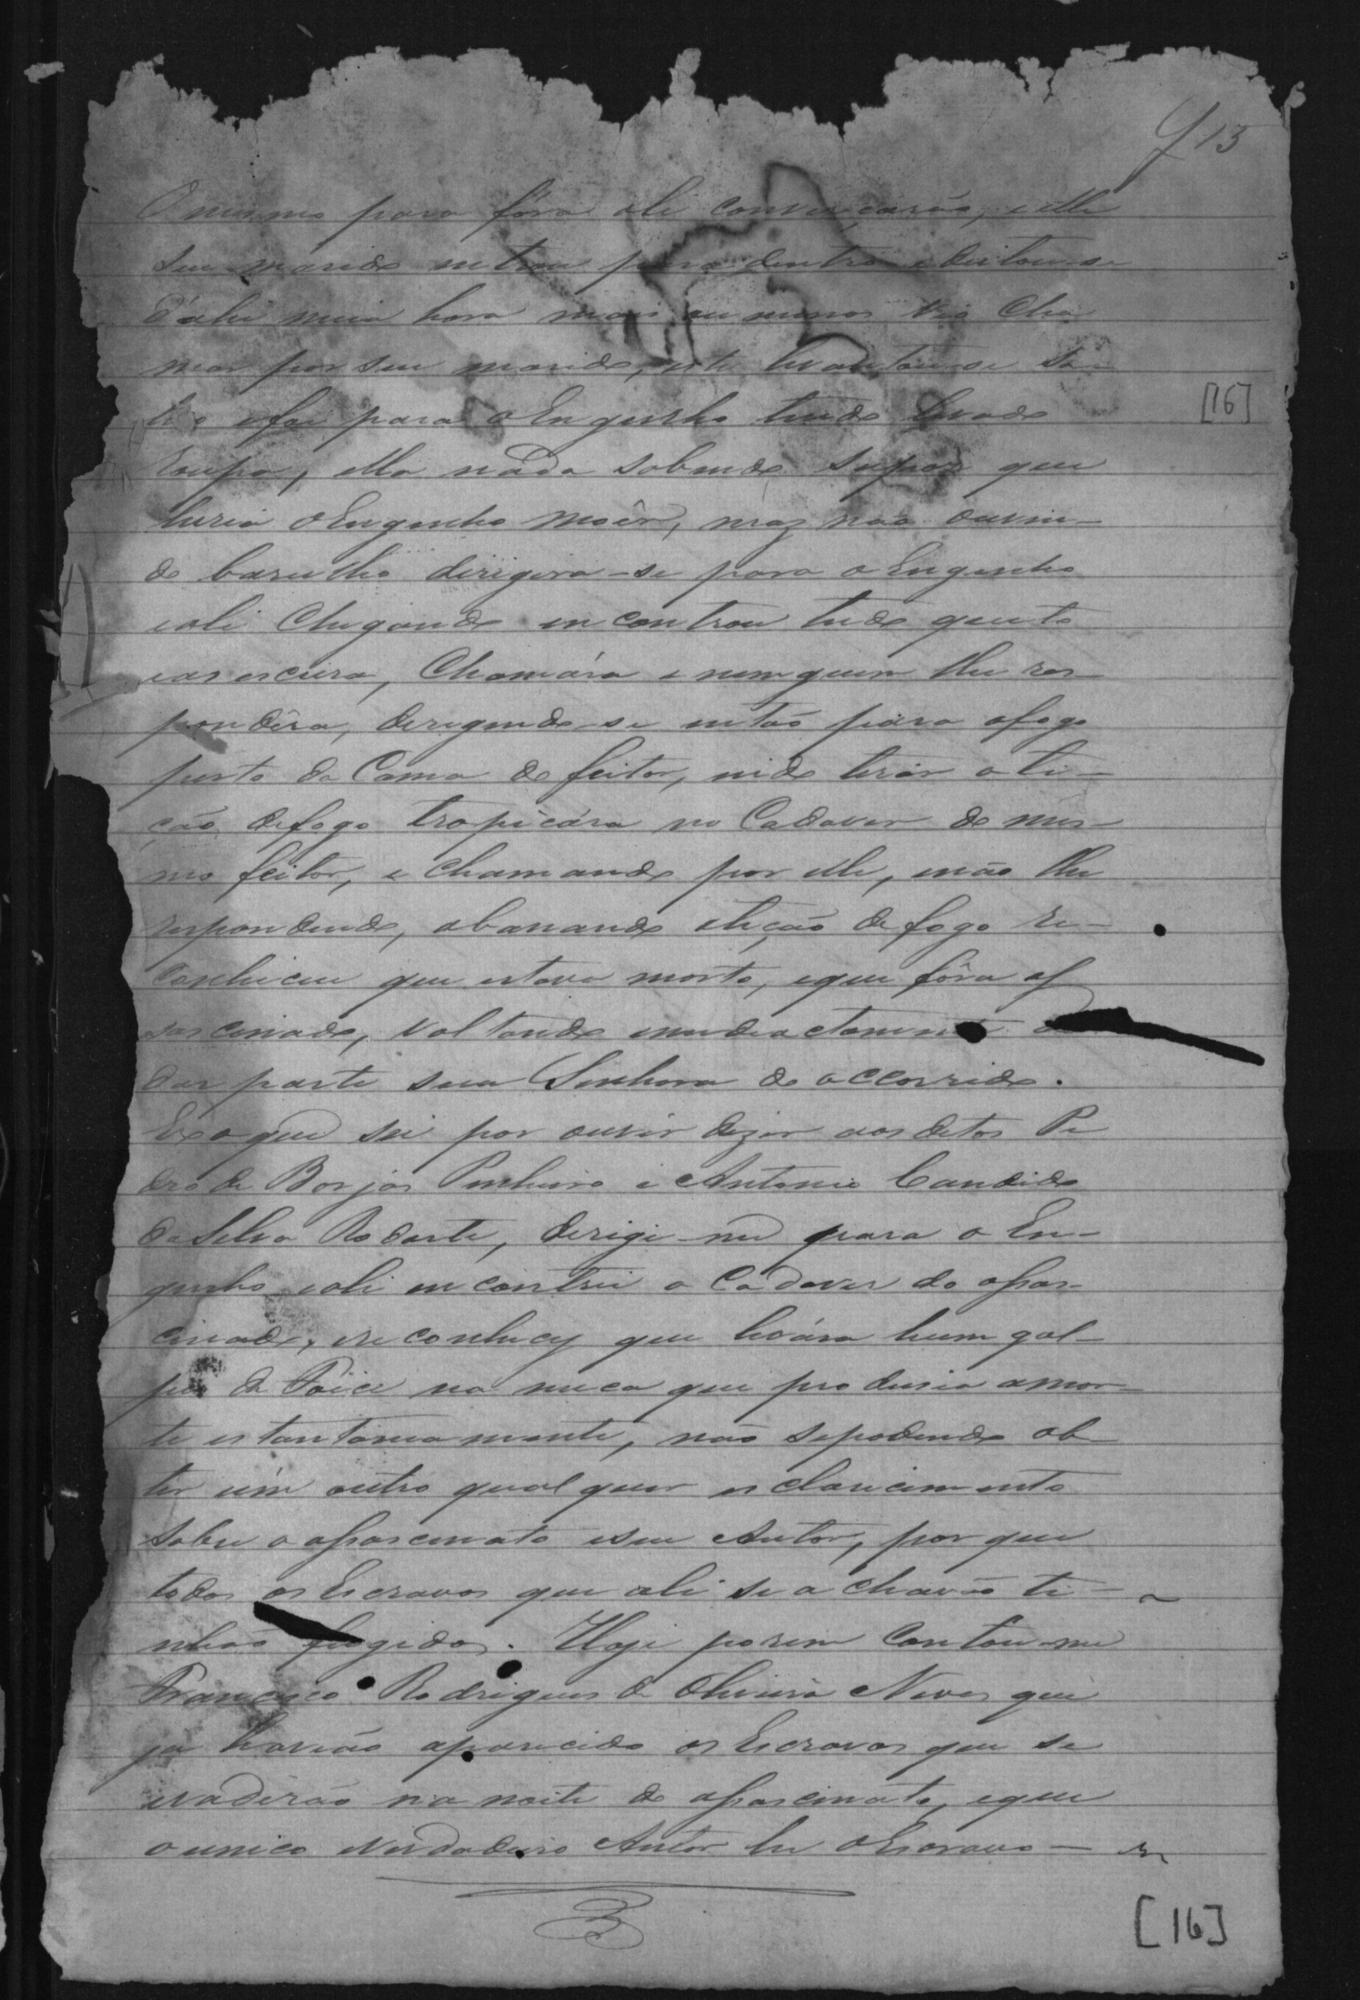 f 13
O mesmo para fóra ali conversarão, e elle
seu marido entrou para dentro e deitou-se
d'ahi meia hora mais ou menos vio cha
mar por seu marido, este levantou-se sa
e foi para o Engenho tendo levado
roupa, ella nada sabendo supoz que
hiria o Engenho moêr, maz não ouvin-
do barulho dirigira-se para o Engenho
e ali chegando encontrou tudo quieto
e as escura, chamára e nemguem lhe res-
pondêra, dirigindo-se então para o fogo
perto da Cama do feitor, indo tirár o ti-
ção de fogo tropicára no Cadaver do mes-
mo feitor, e chamando por elle, e não lhe
respondendo, abanando o tição de fogo re-
conheceu que estava morto, e que fôra as
sascinado, voltando immediactamente a
dar parte sua Senhora do occorrido.
É o que sei por ouvir dizer aos ditos Pe
dro de Borjas Pinheiro e Antonio Candido
da Silva Rodarte, dirigi-me para o En-
genho e ali encontrei o Cadaver do assas-
cinado, e reconhecy que levára hum gol-
pe de Foice na nuca que produsio a mor-
te estantaneamente, não se podendo ob-
ter um outro qualquer esclarecimento
sobre o assascinato e seu Autor, por que
todos os Escravos que ali se achavão ti-
nhão fugido. Hoje porem contou-me
Francisco Rodrigues de Oliveira Neves que
ja havião aparecido os Escravos que se
evadirão na noite do assascinato, e que
o unico verdadeiro Autor he o Escravo —
[16]
[16]